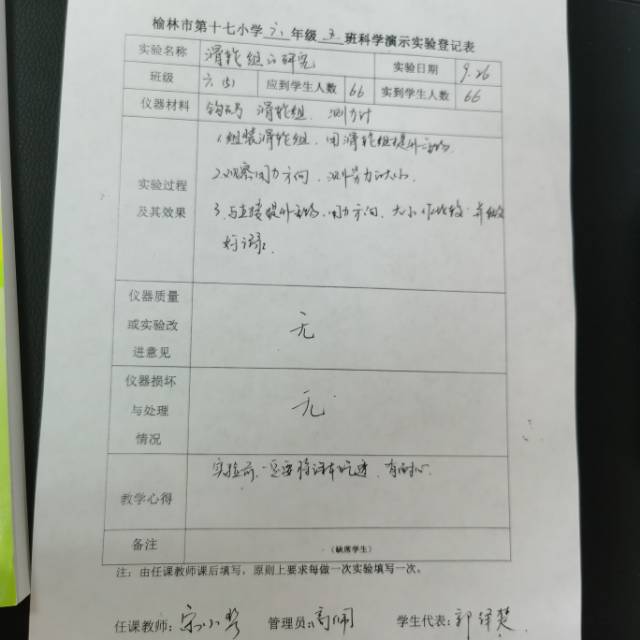 榆林市第十七小学 六 年级 五 班科学演示实验登记表
实验名称 滑轮组的研究 实验日期 9.26
班级 六.(5) 应到学生人数 66 实到学生人数 66
仪器材料 钩码 滑轮组、测力计
实验过程及其效果
1.组装滑轮组,用滑轮组提升重物.
2.观察用力方向,测出力的大小.
3.与直接提升重物,用力方向、大小作比较.并做
好记录.
仪器质量或实验改进意见 无
仪器损坏与处理情况 无
教学心得 实验前一定要将课本吃透,有耐心.
备注 (缺席学生)
注:由任课教师课后填写,原则上要求每做一次实验填写一次。
任课教师: 宋小 管理员: 学生代表: 郭